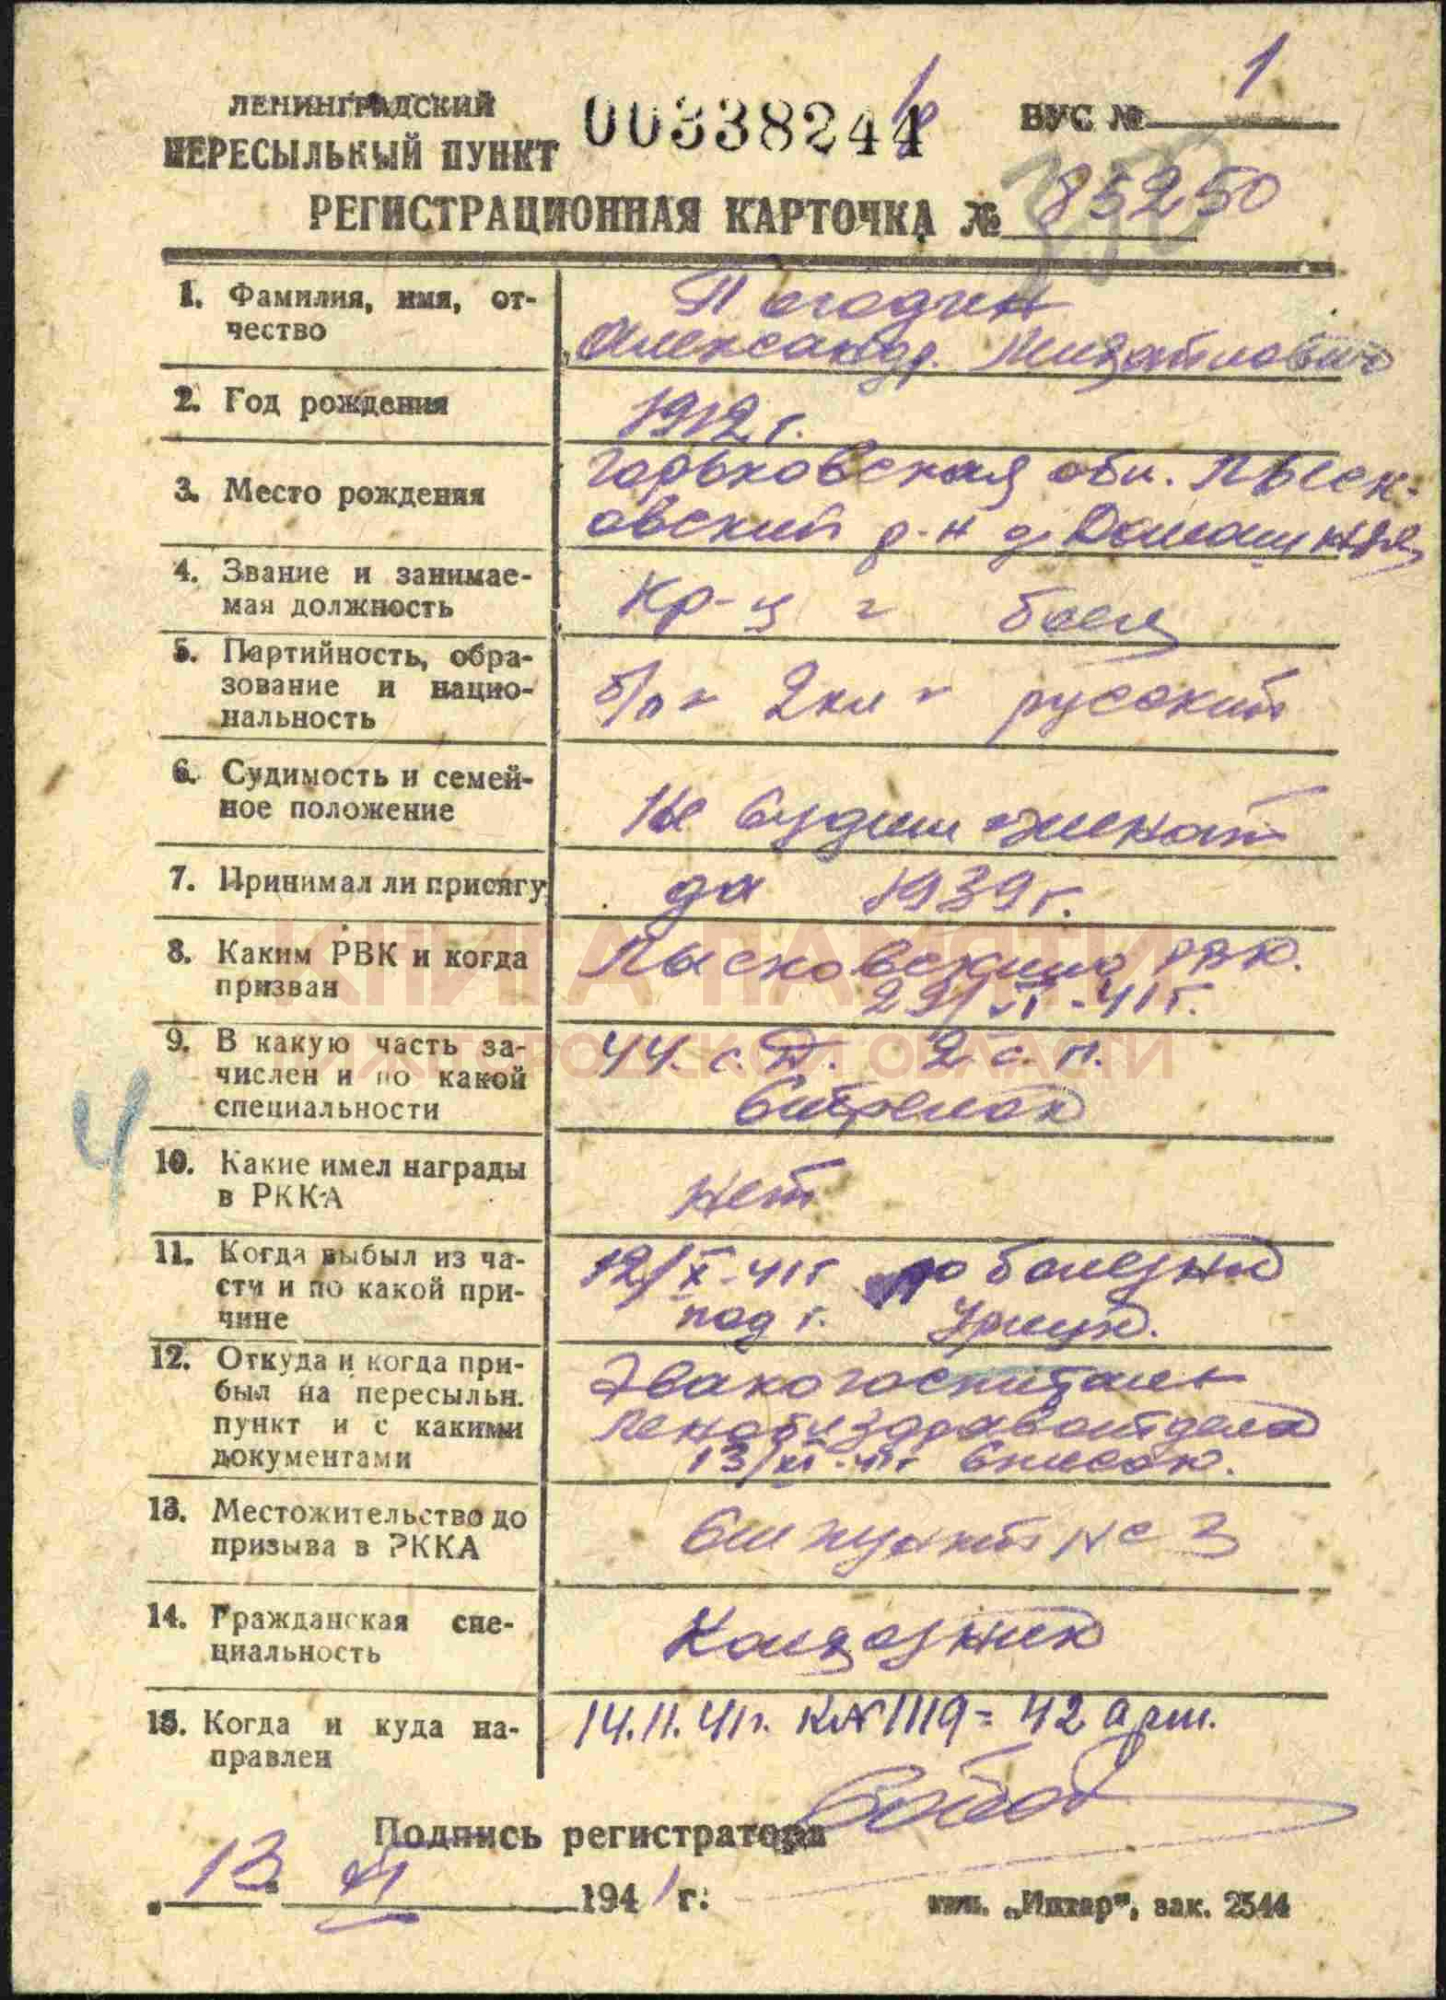 ЛЕНИНГРАДСКИЙ
ПЕРЕСЫЛЬНЫЙ ПУНКТ
00338244
ВУС № 1
РЕГИСТРАЦИОННАЯ КАРТОЧКА № 85250
1. Фамилия, имя, от-
чество
Погодин
Александр. Михайлович
2. Год рождения
1912 г.
3. Место рождения
Горьковская обл. Лыск-
овский р-н д.
4. Звание и занимае-
мая должность
Кр-ц - боец
5. Партийность, обра-
зование и нацио-
нальность
б/п - 2кл - русский
6. Судимость и семей-
ное положение
Не судим женат
7. Принимал ли присягу
да 1939 г.
8. Каким РВК и когда
призван
Лысковским РВК.
41 г.
КНИГА ПАМЯТИ
НИЖЕГОРОДСКОЙ ОБЛАСТИ
9. В какую часть за-
числен и по какой
специальности
44. с. Д. 2 с. п.
Стрелок
4
10. Какие имел награды
в РККА
нет
11. Когда выбыл из ча-
сти и по какой при-
чине
12/X-41г по болезни
под г. Урицк.
12. Откуда и когда при-
был на пересыльн.
пункт и с какими
документами
Эвакогоспиталь
Леноблздравотдела
13/XI-41г список.
13. Местожительство до
призыва в РККА
См пункт № 3
14. Гражданская спе-
циальность
Колхозник
15. Когда и куда на-
правлен
14.11.41г. КN1119 = 42 арм.
Подпись регистратора
13 XI 1941 г.
тип. „Янтарь”, зак. 2544